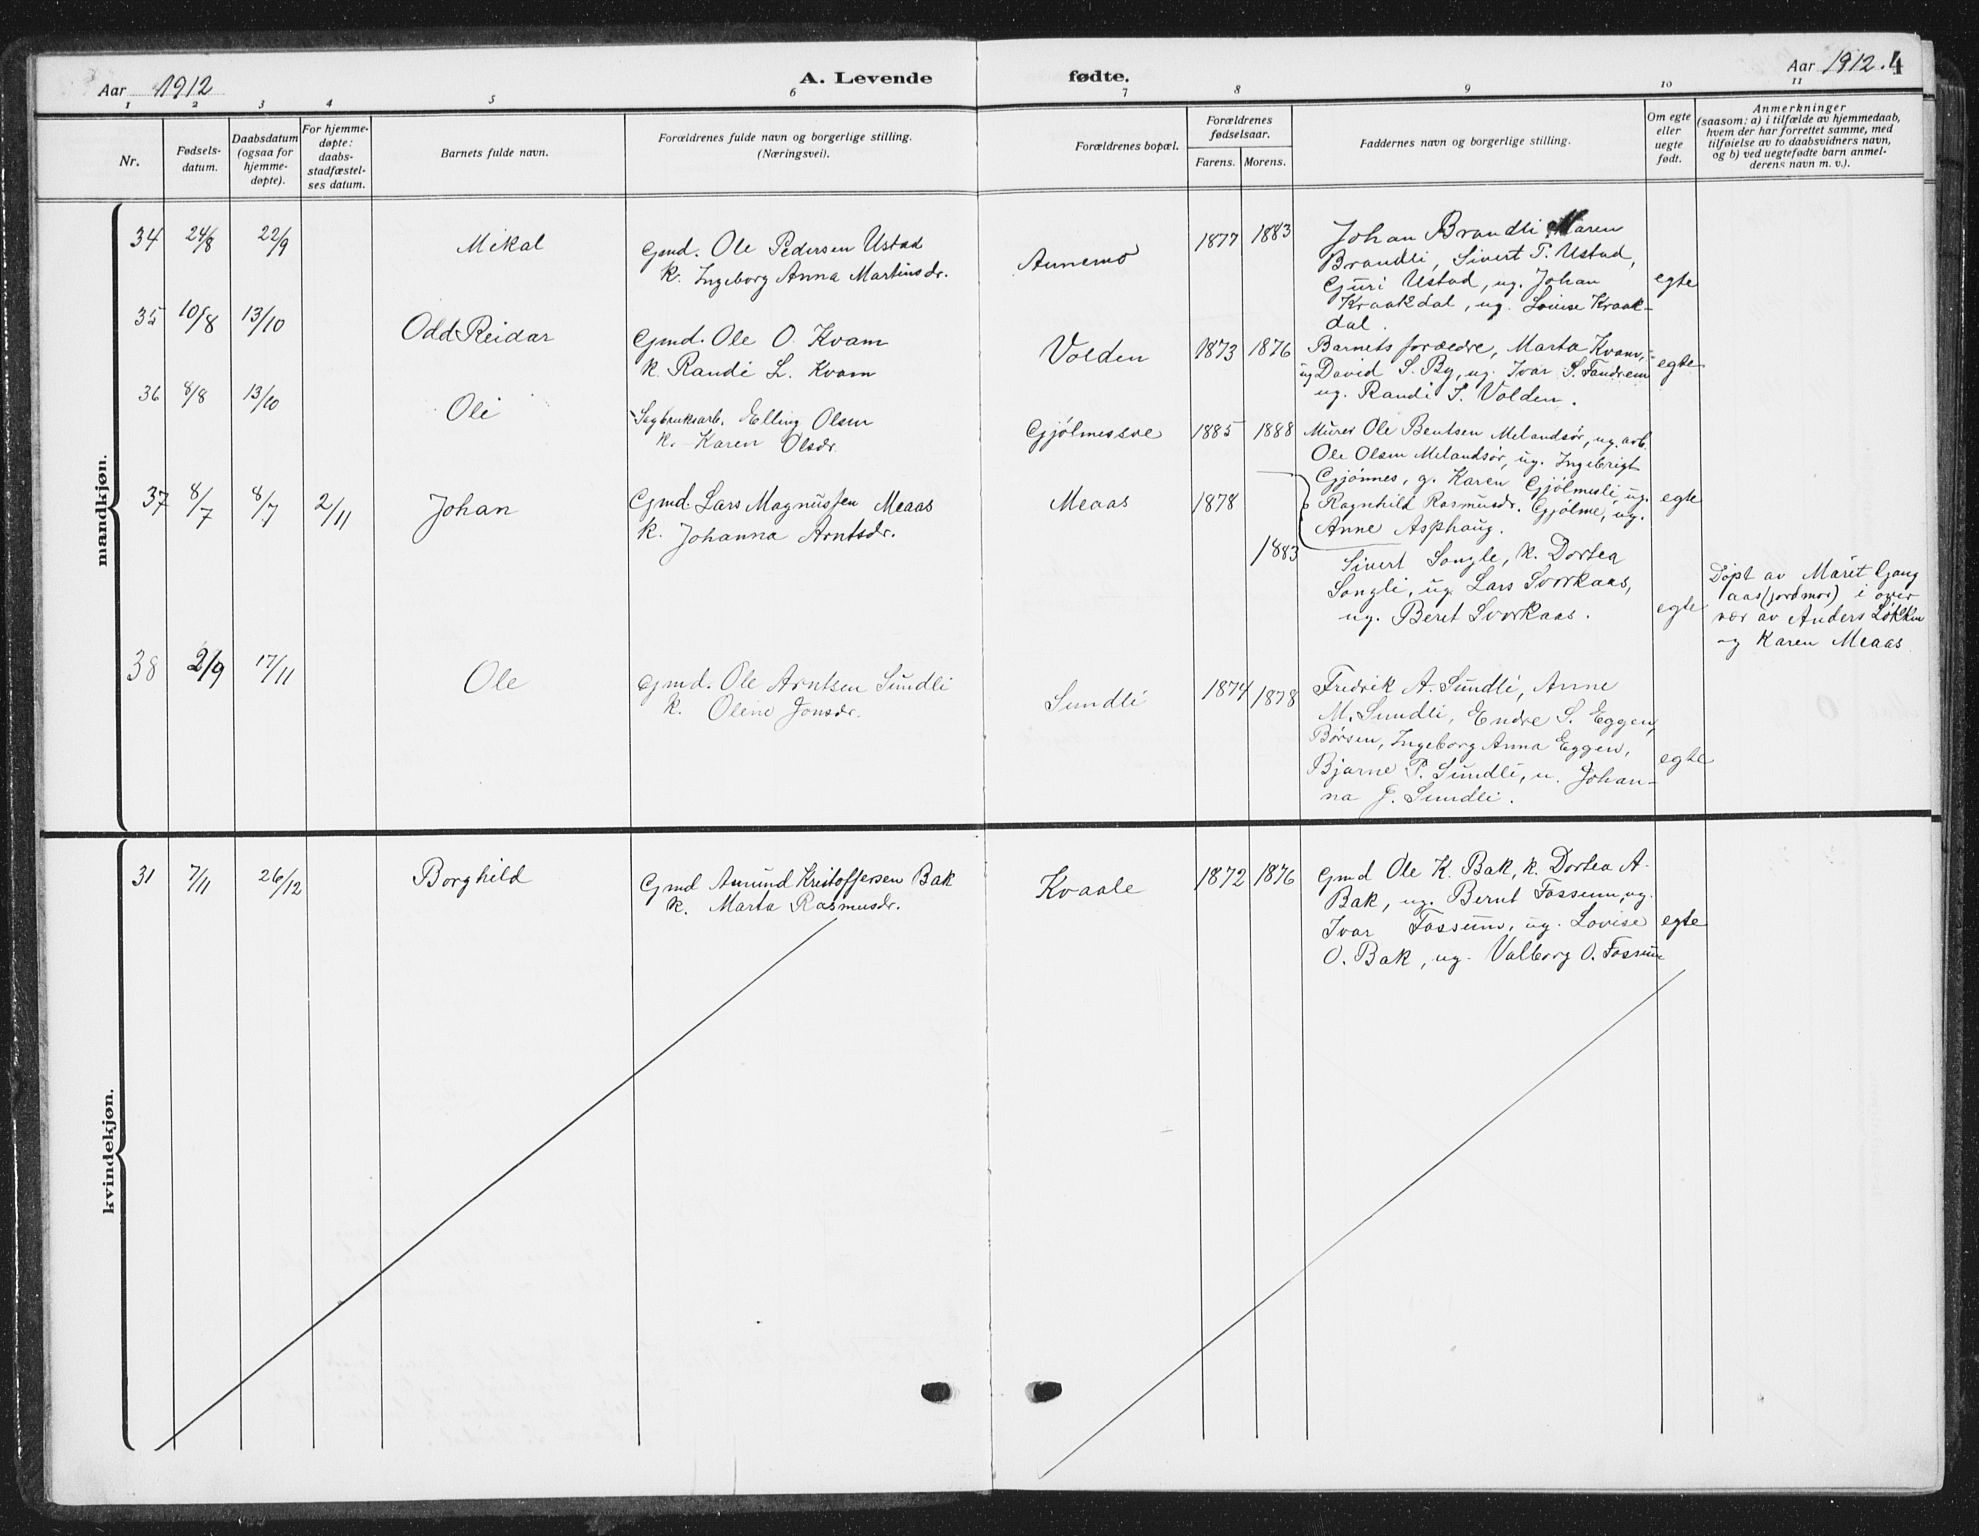 Aar 1912
A. Levende fødte.
Aar 1912. 4
1 2 3 4 5 6 7 8 9 10 11
Nr.
Fødsels-
datum.
Daabsdatum
(ogsaa for
hjemme-
døpte).
For hjemme-
døpte:
daabs-
stadfæstel-
ses datum.
Barnets fulde navn.
Forældrenes fulde navn og borgerlige stilling.
(Næringsvei).
Forældrenes bopæl.
Forældrenes
fødselsaar.
Farens. Morens.
Faddernes navn og borgerlige stilling.
Om egte
eller
uegte
født.
Anmerkninger
(saasom: a) i tilfælde av hjemmedaab,
hvem der har forrettet samme, med
tilføielse av to daabsvidners navn,
og b) ved uegtefødte barn anmel-
derens navn m. v.).
mandkjøn.
34 24/8 22/9 Mikal
Gmd. Ole Pedersen Ustad
k. Ingeborg Anna Martinsdr.
Aunemo 1877 1883
Johan Brandli, Maren
Brandli, Sivert P. Ustad,
Guri Ustad, ug. Johan
Kraakdal, ug. Louise Kraak-
dal.
egte
35 10/8 13/10 Odd Reidar
Gmd. Ole O. Kvam
k. Randi L. Kvam
Volden 1873 1876
Barnets forældre, Marta Kvam,
ug David S. By, ug. Ivar S.
ug. Randi J. Volden.
egte
36 8/8 13/10 Oli
Sagbruksarb. Elling Olsen
k. Karen Olsdr.
Gjølmesøe 1885 1888
Murer Ole Bentsen Melandsør, ug. arb.
Ole Olsen Melandsør, ug. Ingebrigt
Gjønnes, g. Karen Gjølmesli, ug.
Ragnhild Rasmusdr. Gjølme, ug.
Anne Asphaug.
egte
37 8/7 8/7 2/11 Johan
Gmd. Lars Magnussen Meaas
k. Johanna Arntsdr.
Meaas 1878 1883
Sivert Songle, k. Dortea
Songli, ug. Lars Svorkaas,
ug. Beret Svorkaas.
egte
Døpt av Marit Gang
aas (jordmor) i over
vær av Anders Løkken
og Karen Meaas
38 2/9 17/11 Ole
Gmd. Ole Arntsen Sundli
k. Oline Jonsdr.
Sundli 1874 1878
Fredrik A. Sundli, Anne
M. Sundli, Endre S. Eggen,
Børsen, Ingeborg Anna Eggen,
Bjarne P. Sundli, u. Johan-
na J. Sundli.
egte
kvindekjøn.
31 7/11 26/12 Borghild
Gmd Amund Kristoffersen Bak
k. Marta Rasmusdr.
Kvaale 1872 1876
Gmd Ole K. Bak, k. Dortea A.
Bak, ug. Bernt Fossum, ug.
Ivar Fossum, ug. Lovise
O. Bak, ug. Valborg O. Fossum
egte